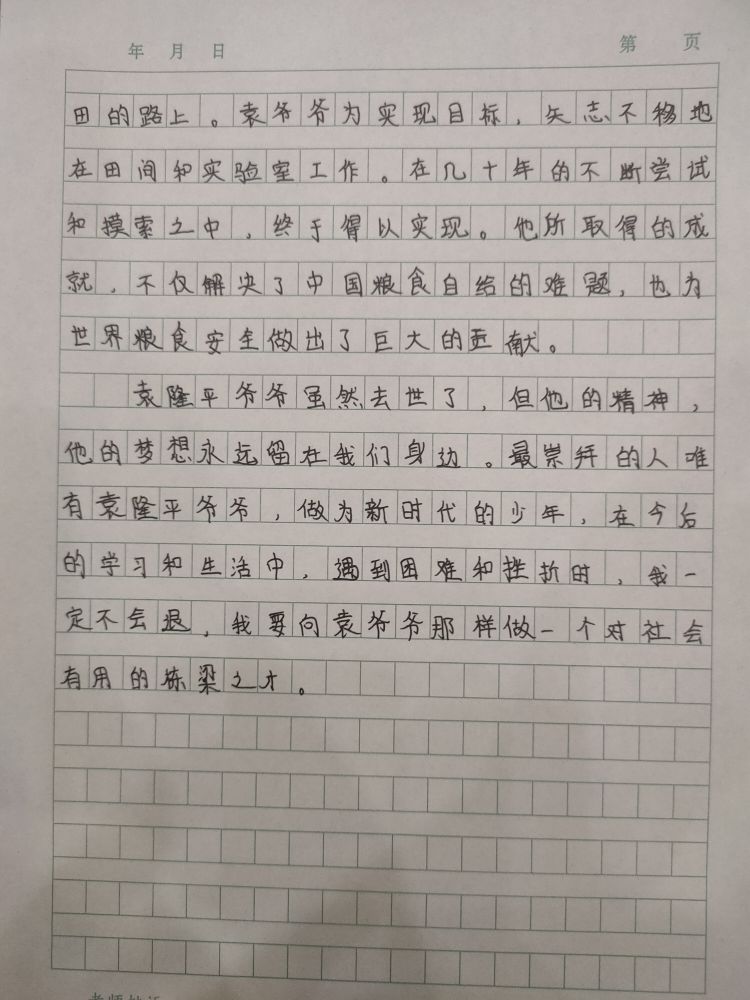 年 月 日
第 页
田的路上。袁爷爷为实现目标，矢志不移地
在田间和实验室工作。在几十年的不断尝试
和摸索之中，终于得以实现。他所取得的成
就，不仅解决了中国粮食自给的难题，也为
世界粮食安全做出了巨大的贡献。
袁隆平爷爷虽然去世了，但他的精神，
他的梦想永远留在我们身边。最崇拜的人唯
有袁隆平爷爷，做为新时代的少年，在今后
的学习和生活中，遇到困难和挫折时，我一
定不会退，我要向袁爷爷那样做一个对社会
有用的栋梁之才。